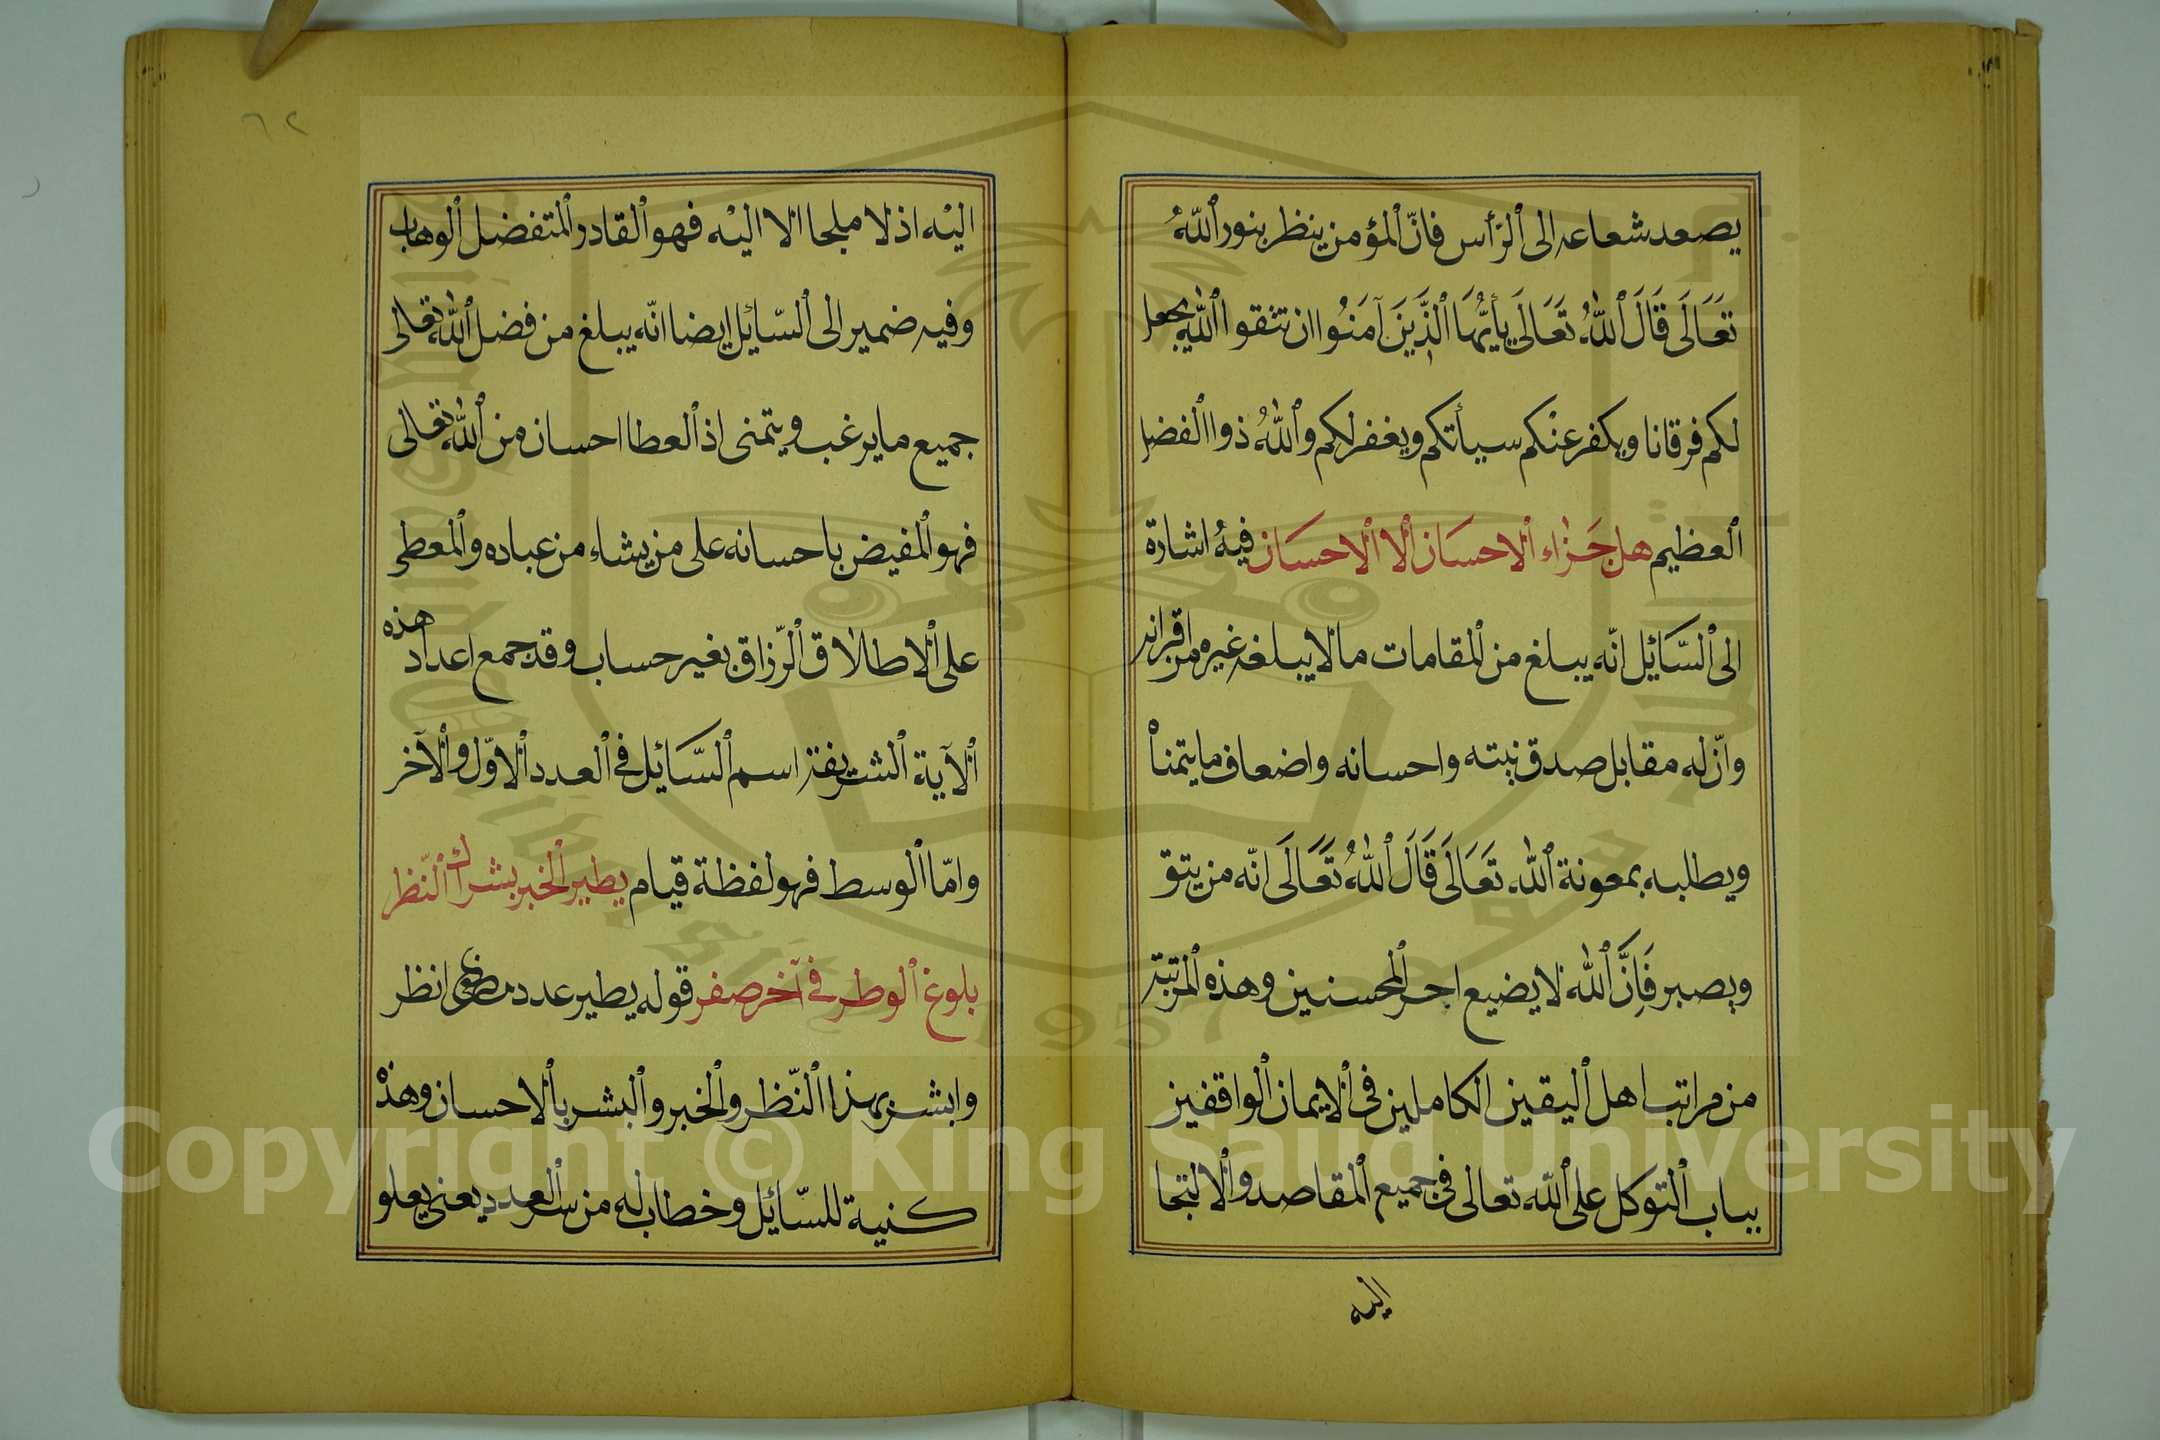 يصعد شعاعه الى الرّأس فانّ المؤمن ينظر بنور اللّهُ
تَعَالَى قَالَ اللّهُ تَعَالَى يأيُّهَا الَّذِينَ آمَنُوا ان تتقوا اللّه يجعل
لكم فرقانا ويكفر عنْكم سيأتكم ويغفر لكم واللّهُ ذوا الفضل
العظيم هل جَزاء الاحسَان الا الاحسَان فيهُ اشارة
الى السَّائيل انّه يبلغ من المقامات مالا يبلغه غيره من اقرانه
وانّ له مقابل صدق نيته واحسانه واضعاف ما يتمناْ
ويطلبه بمعونة اللّه تَعَالَى قَالَ اللّهُ تَعَالَى انّه من يتق
ويصبر فَاِنَّ اللّه لا يضيع اجر المحسنين وهذه المرتبة
من مراتب اهل اليقين الكاملين فى الايمان الواقفين
بباب التوكل على اللّه تعالى فى جميع المقاصد والالتجا
اليه
٦٢
اليْه اذ لا ملجا الا اليْه فهو القادر المتفضل الوهاب
وفيه ضمير الى السّائل ايضا انّه يبلغ من فضل اللّه تعالى
جميع ما يرغب ويتمنى اذ العطا احسان من اللّه تعالى
فهو المفيض باحسانه على من يشاء من عباده والمعطى
على الاطلاق الرّزاق بغير حساب وقد جمع اعداد هذه
الآية الشريفة اسم السَّائيل فى العدد الاوّل والآخر
وامّا الوسط فهو لفظة قيام يطير الخبر بشراك النّظر
بلوغ الوطر فى آخر صفر قوله يطير عدد انظر
وابشر بهذا النّظر والخبر والبشر بالاحسان وهذْ
كنية للسّائل وخطاب له من سر العدد يعنى يعلو
Copyright © King Saud University
1957